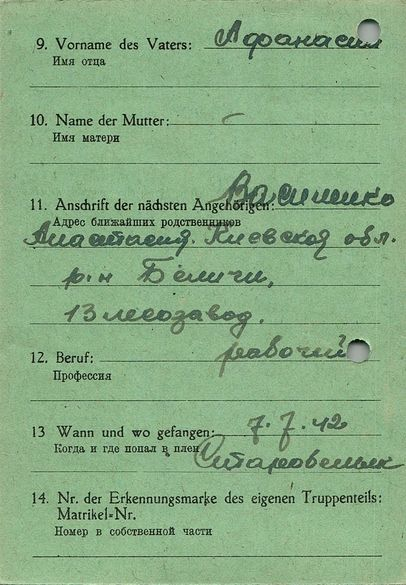 9. Vorname des Vaters: Афанасий
Имя отца
10. Name der Mutter: –
Имя матери
Василенко
11. Anschrift der nächsten Angehörigen:
Адрес ближайших родственников
Анастасия. Киевская обл.
р-н Беличи,
13 лесозавод.
12. Beruf: рабочий
Профессия
13 Wann und wo gefangen: 7.7.42
Когда и где попал в плен Старобельск
14. Nr. der Erkennungsmarke des eigenen Truppenteils:
Matrikel=Nr.
Номер в собственной части